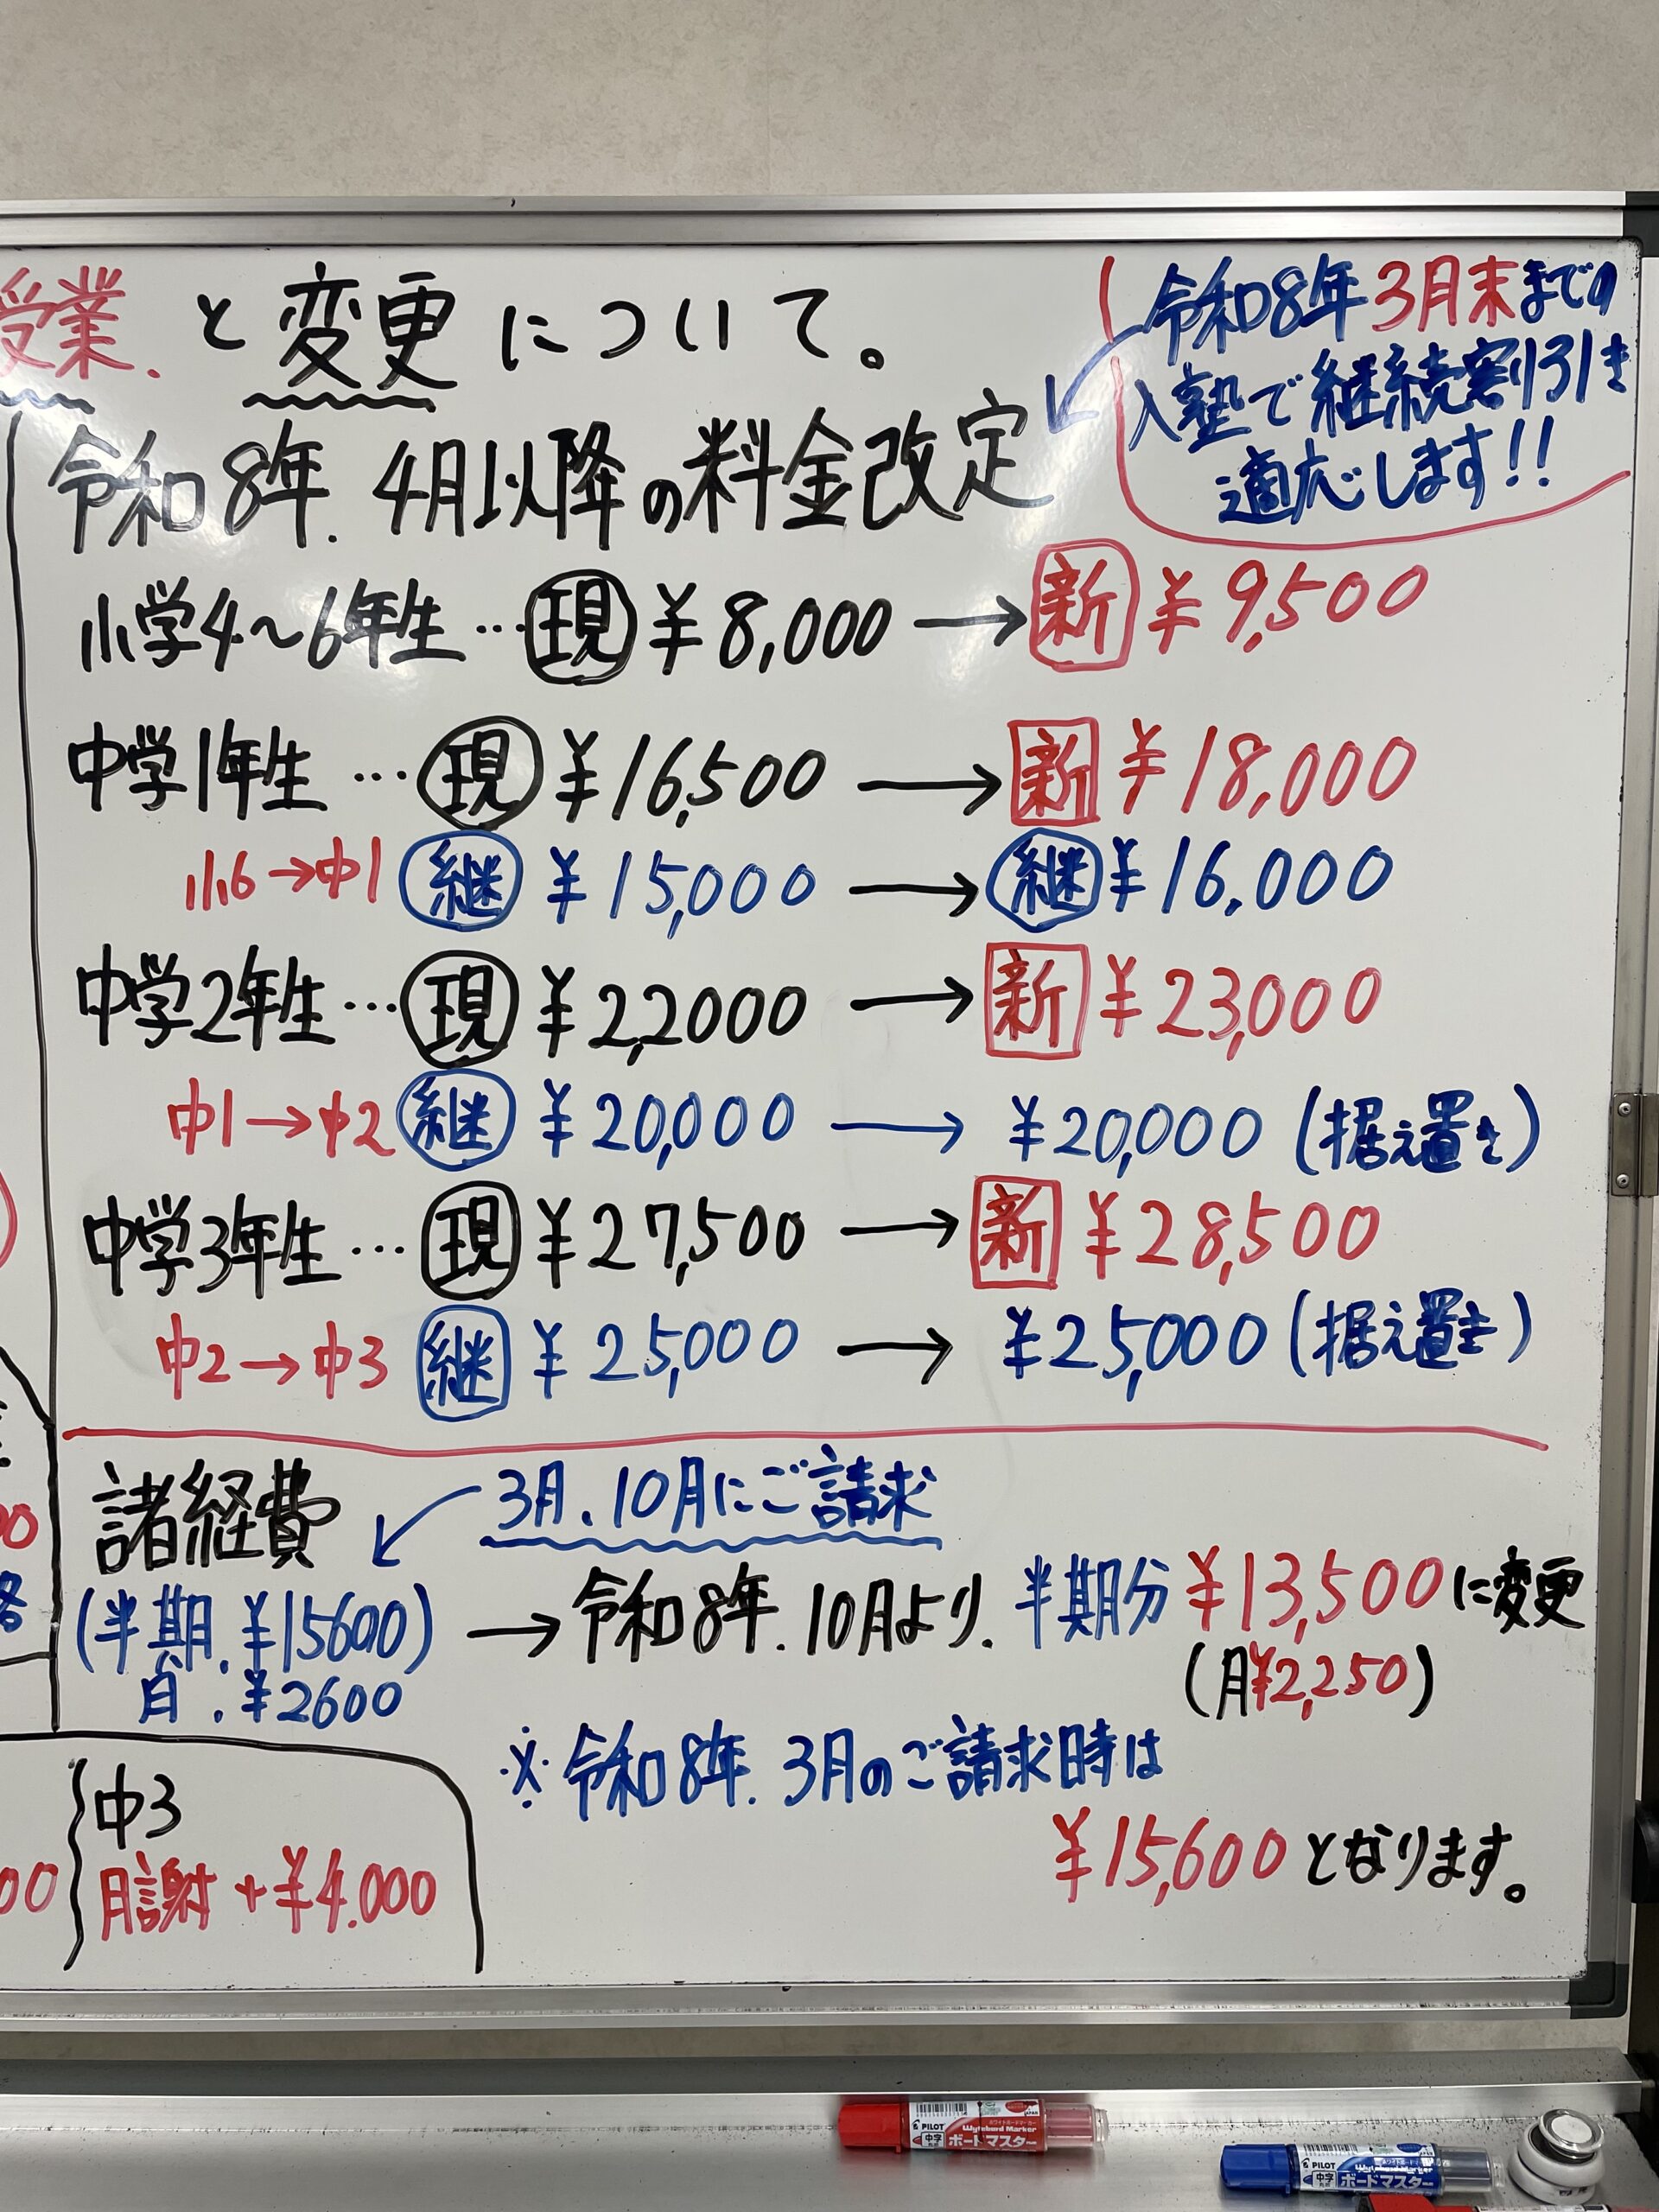 受業.と変更について。
令和8年3月末までの
入塾で継続割引き
適応します!!
令和8年.4月以降の料金改定
小学4〜6年生…現¥8,000→新¥9,500
中学1年生…現¥16,500→新¥18,000
小6→中1継¥15,000→継¥16,000
中学2年生…現¥22,000→新¥23,000
中1→中2継¥20,000→¥20,000(据え置き)
中学3年生…現¥27,500→新¥28,500
中2→中3継¥25,000→¥25,000(据え置き)
諸経費 3月、10月にご請求
(半期.¥15600)→令和8年.10月より.半期分¥13,500に変更
月.¥2600
(月¥2,250)
※令和8年.3月のご請求時は
¥15,600となります。
中3
月謝+¥4.000
PILOT
中字
Wyteboard Marker
ボードマスター
PILOT
中字
Wyteboard Marker
ボードマスター